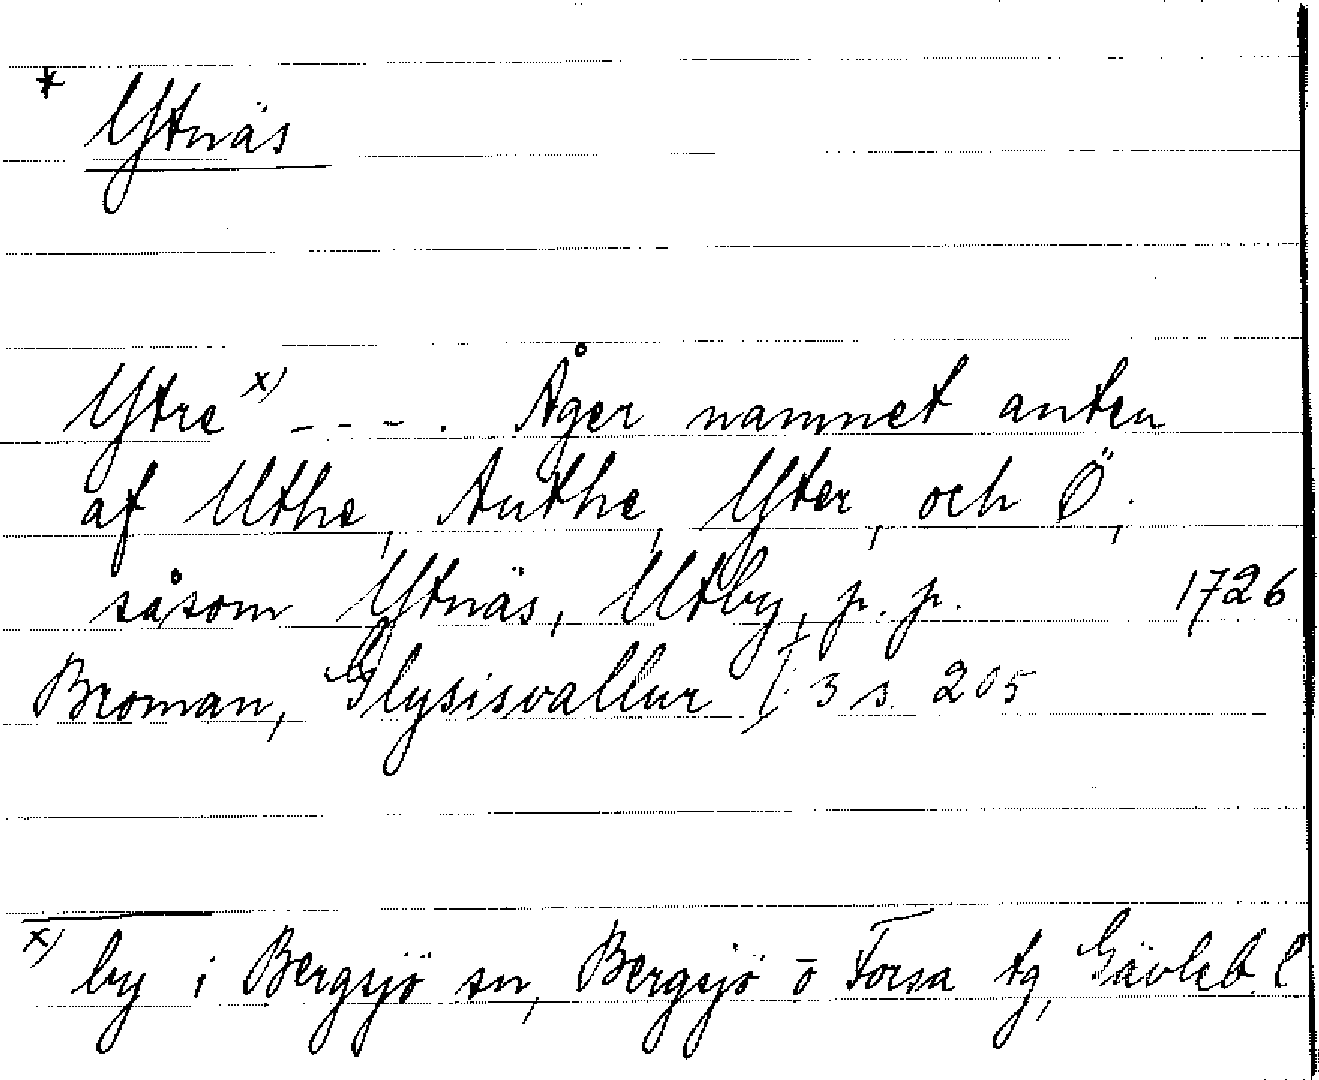 * Ytnäs
Ytre x) - - - . Äger namnet anten
af Uthe, Authe, Yter, och Ö;
såsom Ytnäs, Utby, p. p. 1726
Broman, Glysisvallur I: 3 s. 205
x) by i Bergsjö sn, Bergsjö o Forsa tg, Gävleb. l